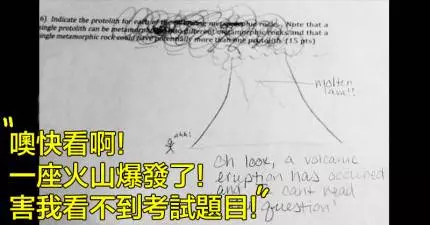 6) Indicate the protolith for each of the following metamorphic rocks. Note that a
single protolith can be metamorphosed into different metamorphic rocks and that a
single metamorphic rock could have potentially more than one protolith. (15 pts)
molten
lava!!
ahh!
Oh look, a volcanic
eruption has occured
and cant read
question!
"噢快看啊!
一座火山爆發了!
害我看不到考試題目!"